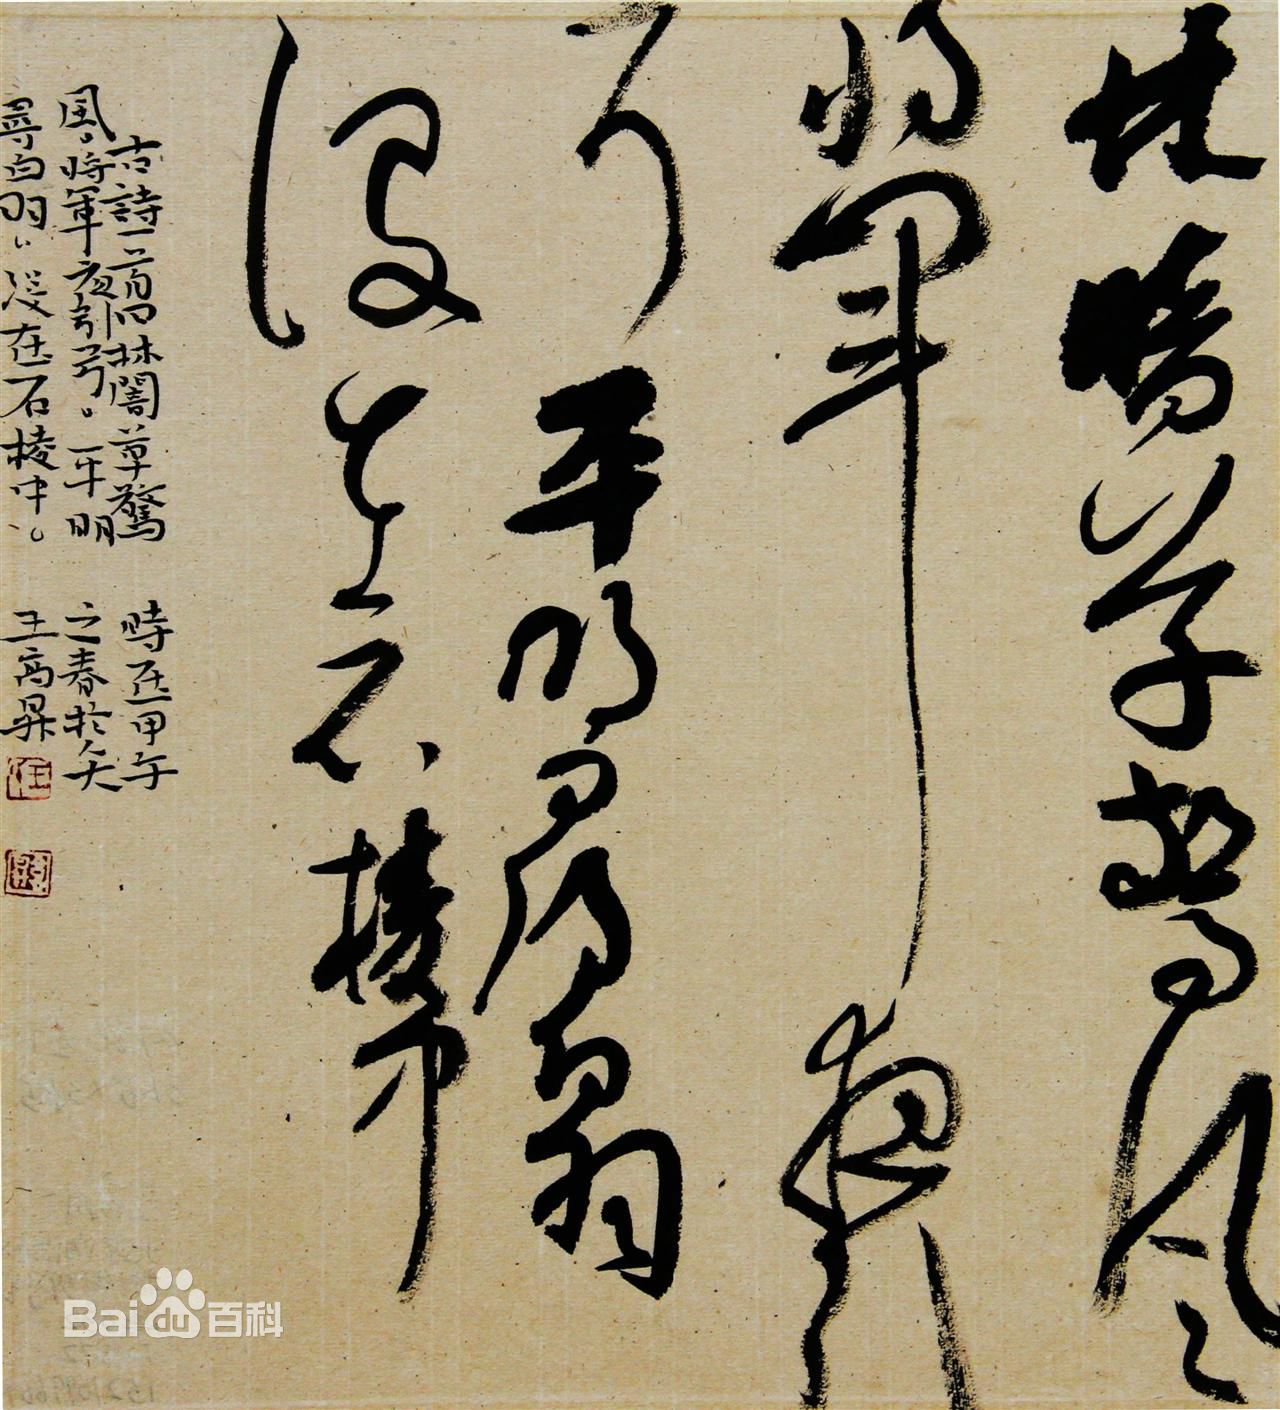 林暗草驚風
將軍夜引
弓平明尋白羽
没在石棱中
古詩一首曰林闇草驚
風將軍夜引弓平明
尋白羽没在石棱中
時在甲午
之春於
王高昇
Bai百科